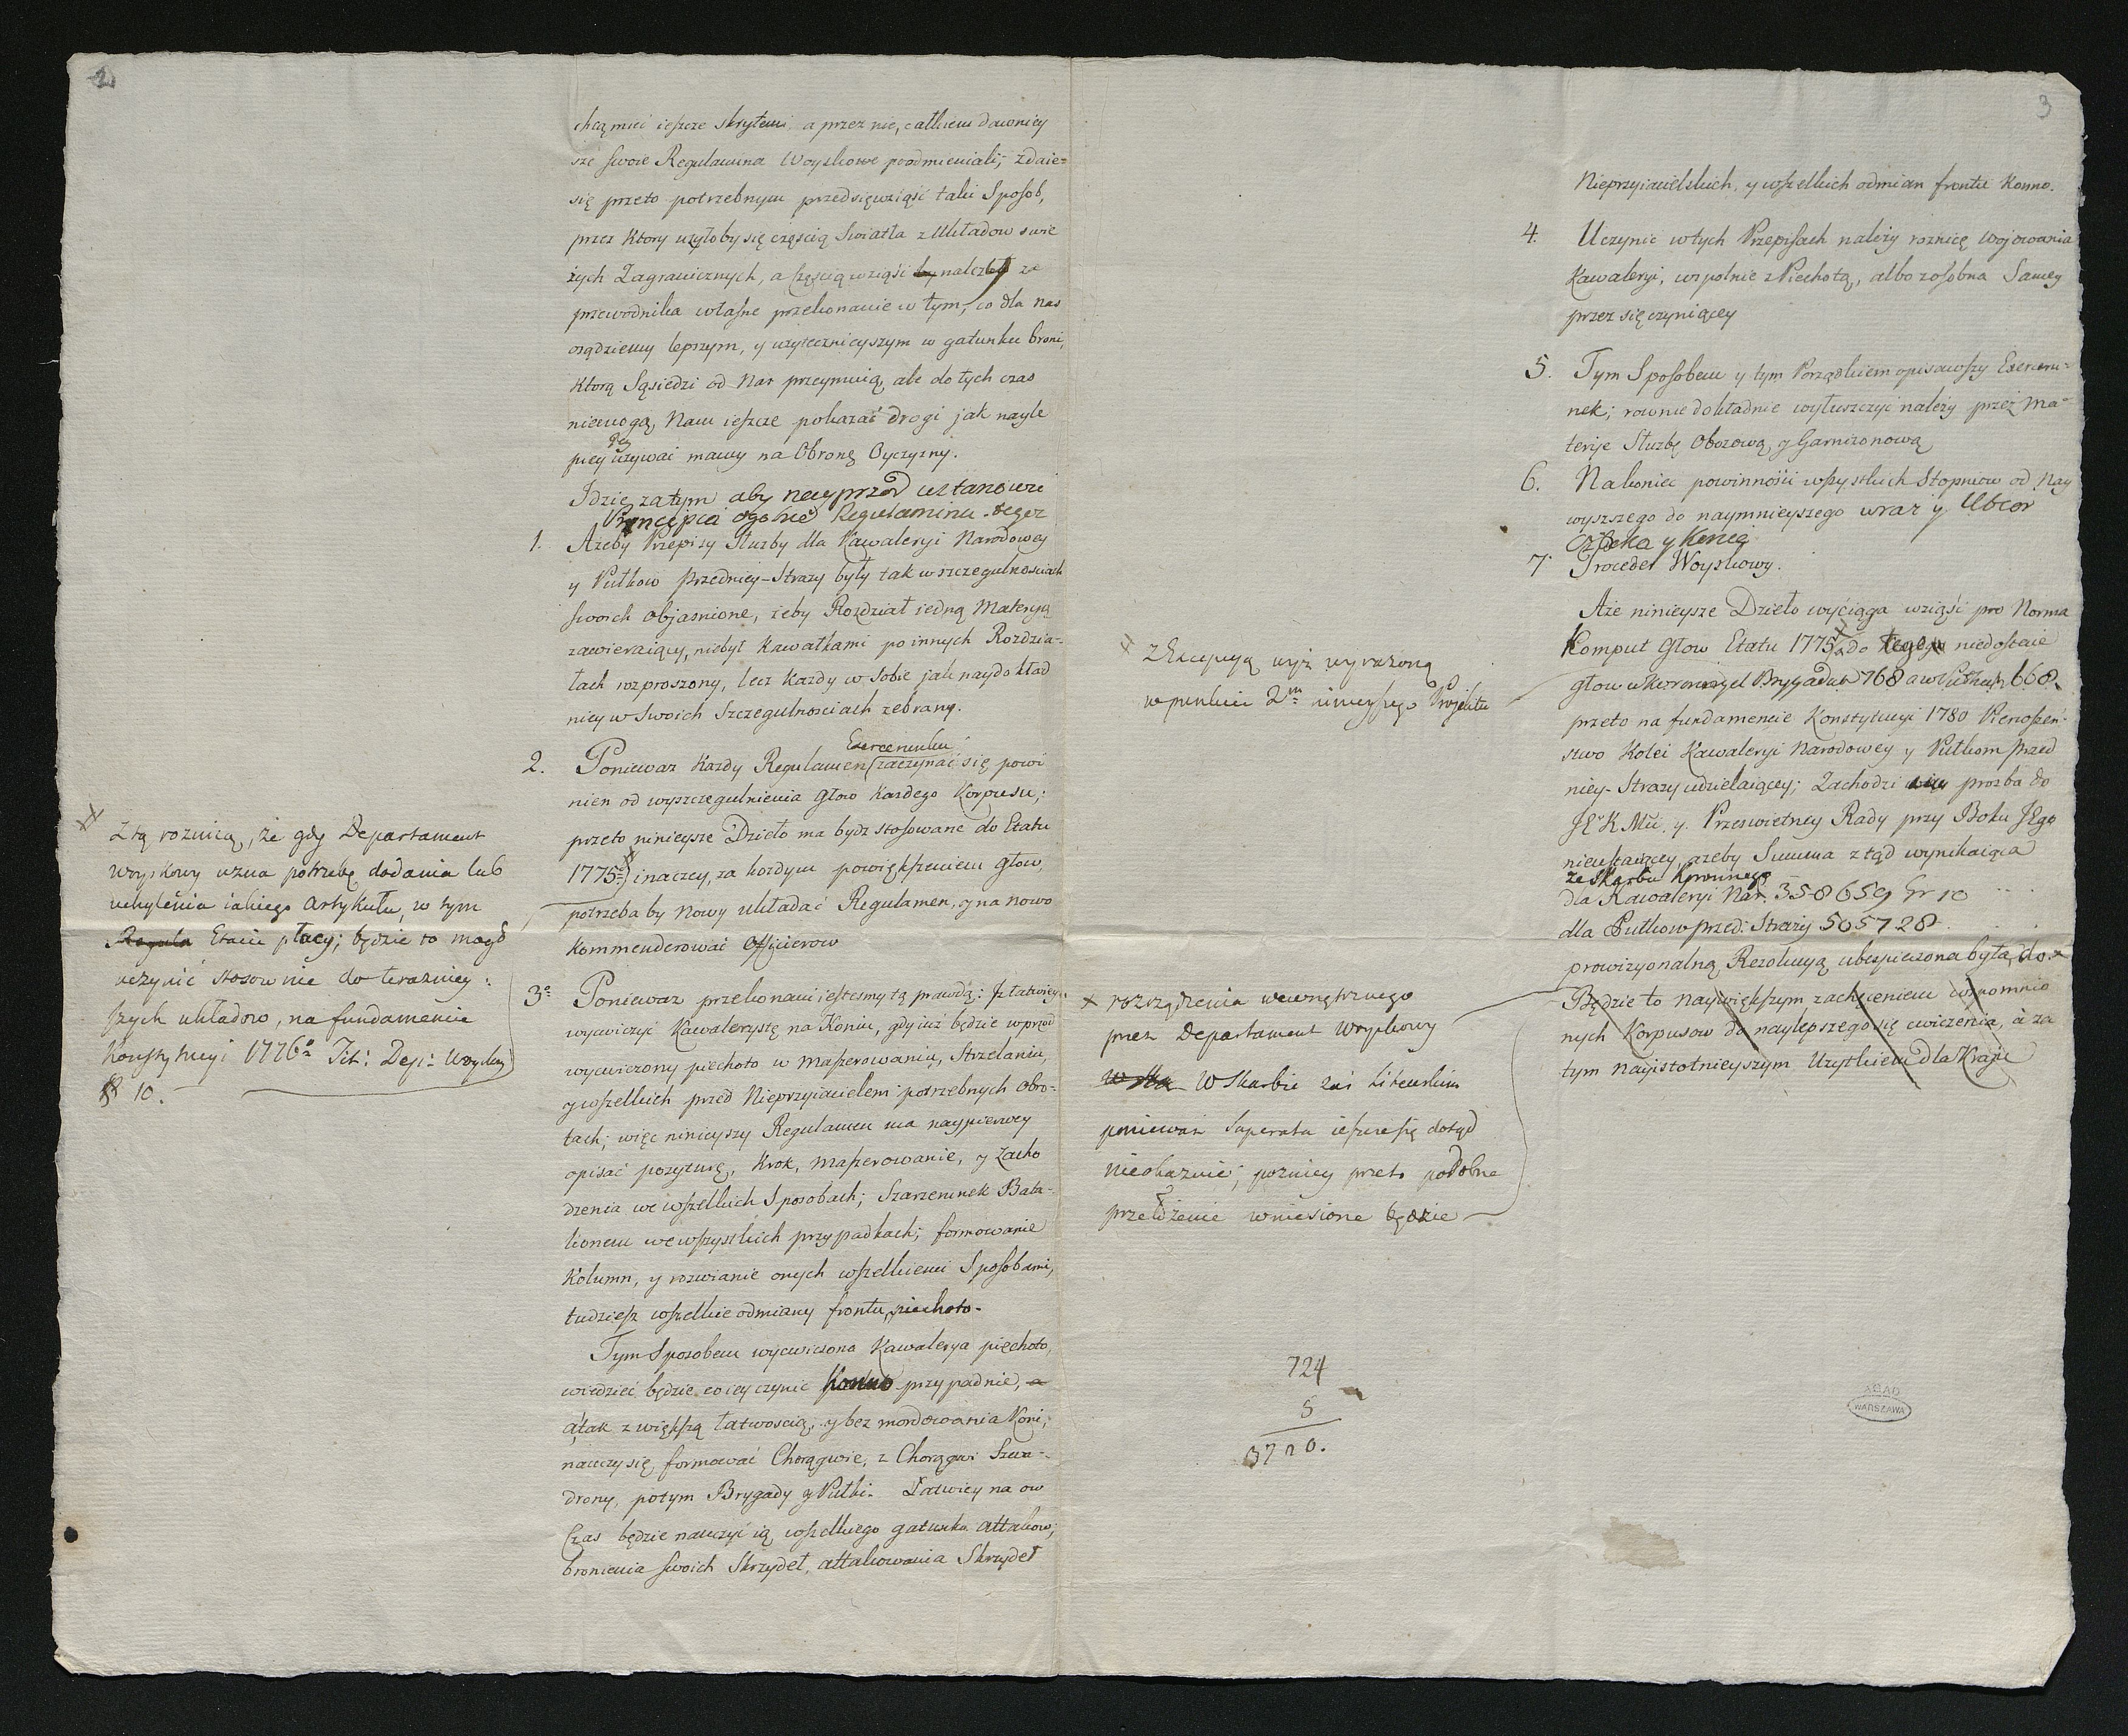 2
chcą mieć ieszcze skrytemi, a przez nie, całkiem dawniey
sze swoie Regulamina Woyskowe poodmieniali; zdaie
się przeto potrzebnym przedsięwziąść taki Sposob,
przez Ktory użyłoby się częścią Swiatła z Układow swie
żych Zagranicznych, a częścią wziąść by należało za
przewodnika własne przekonanie w tym, co dla nas
osądziemy lepszym, y użytecznieyszym w gatunku broni,
ktorą Sąsiedzi od Nas przeymuią, ale do tych czas
niemogą Nam ieszcze pokazać drogi jak nayle
piey Jey używać mamy na Obronę Oyczyzny.
Idzie zatym aby nayprzod ustanowić
Pryncypia ogolne Regulaminu
1. Ażeby Przepisy Służby dla Kawaleryi Narodowey
y Pułkow Przedniey-Straży były tak w szczegulnościach
swoich objasnione, żeby Rozdział iedną Materyą
zawieraiący, niebył Kawałkami po innych Rozdzia-
łach rozproszony, lecz każdy w sobie jak naydokład
niey w Swoich Szczegulnosciach zebrany.
2. Poniewaz Kazdy Regulamen Exercerunku zaczynać się powi
nien od wyszczegulnienia głow Każdego Korpusu;
przeto ninieysze Dzieło ma bydz stosowane do Etatu
1775 inaczey, za kożdym powiększeniem głow,
potrzeba by Nowy układać Regulamen, y na nowo
Kommenderować Officierow
3° Poniewaz przekonani iestesmy tą prawdą: iż łatwiey
wycwiczyć Kawalerystę na Koniu, gdy iuż będzie wprzod
wycwiczony piechoto w Maszerowaniu, Strzelaniu,
y wszelkich przed Nieprzyiacielem potrzebnych obro-
tach; więc ninieyszy Regulamen ma naypierwey
opisać pozyturę, Krok, Maszerowanie, y Zacho
dzenia we wszelkich Sposobach; Szarzerunek Bata-
lionem we wszystkich przypadkach; formowanie
Kolumn, y rozwianie onych wszelkiemi Sposobami,
tudziesz wszelkie odmiany frontu, piechoto.
Tym Sposobem wycwiczona Kawalerya piechoto,
wiedzieć będzie co iey czynić Konno przypadnie, a
a tak z większą łatwoscią, y bez mordowania Koni,
nauczy się formować Chorągwie, z Chorągwi Szwa-
drony, potym Brygady y Pułki. Łatwiey na ow
Czas będzie nauczyć ią wszelkiego gatunku attakow,
bronienia swoich Skrzydeł, attakowania Skrzydeł
Z tą roznicą, że gdy Departament
Woyskowy uzna potrzebę dodania lub
uchylenia iakiego Artykułu, w tym
Regula Etacie płacy; będzie to mogł
uczynić stosownie do teraźniey-
szych układow, na fundamencie
Konstytucyi 1776° Tit: Dep: Woysko
§ 10.
3
z Excepcyą wyż wyrażoną
w punkcie 2m ninieyszego Projektu
rozrządzenia wewnętrznego
przez Departament Woyskowy
W Ska W Skarbie zaś Litewskim
poniewaz Superata ieszcze się dotąd
nieokazuie; pozniey przeto podobne
przełożenie wniesione będzie
724
5
3720.
Nieprzyiacielskich, y wszelkich odmian frontu Konno.
4. Uczynić w tych Przepisach należy roznicę Wojowania
Kawaleryi, wspolnie z Piechotą, albo z osobna Samey
przez się czyniącey
5. Tym Sposobem y tym Porządkiem opisawszy Exerceru-
nek; rownie dokładnie wyłuszczyć należy przez Ma-
terije Służbę Obozową, y Garnizonową
6. Nakoniec powinności wszystkich Stopniow od Nay
wyszszego do naymnieyszego wraz y Ubior
człeka y Konia
7. Proceder Woyskowy.
Aże ninieysze Dzieło wyciąga wziąść pro Norma
Komput Głow Etatu 1775 do tego niedostaie
głow w Brygadach 768 a w Pułkach 668
przeto na fundamencie Konstytucyi 1780 Pierwszeń-
stwo Kolei Kawaleryi Narodowey y Pułkom Przed
niey-Strazy udzielaiącey; Zachodzi prozba do
JE K Mci, y Przeswietney Rady przy Boku JEgo
nieustaiącey, azeby Summa ztąd wynikaiąca
ze Skarbu Koronnego
dla Kawaleryi Nar: 358659 Gr 10
dla Pułkow przed: Straży 505728
prowizyonalną Rezolucyą ubespieczona była, do
Będzie to naywiększym zachęceniem wspomnio
nych Korpusow do naylepszego się cwiczenia, à za
tym nayistotnieyszym Użytkiem dla Kraju
AGAD
WARSZAWA